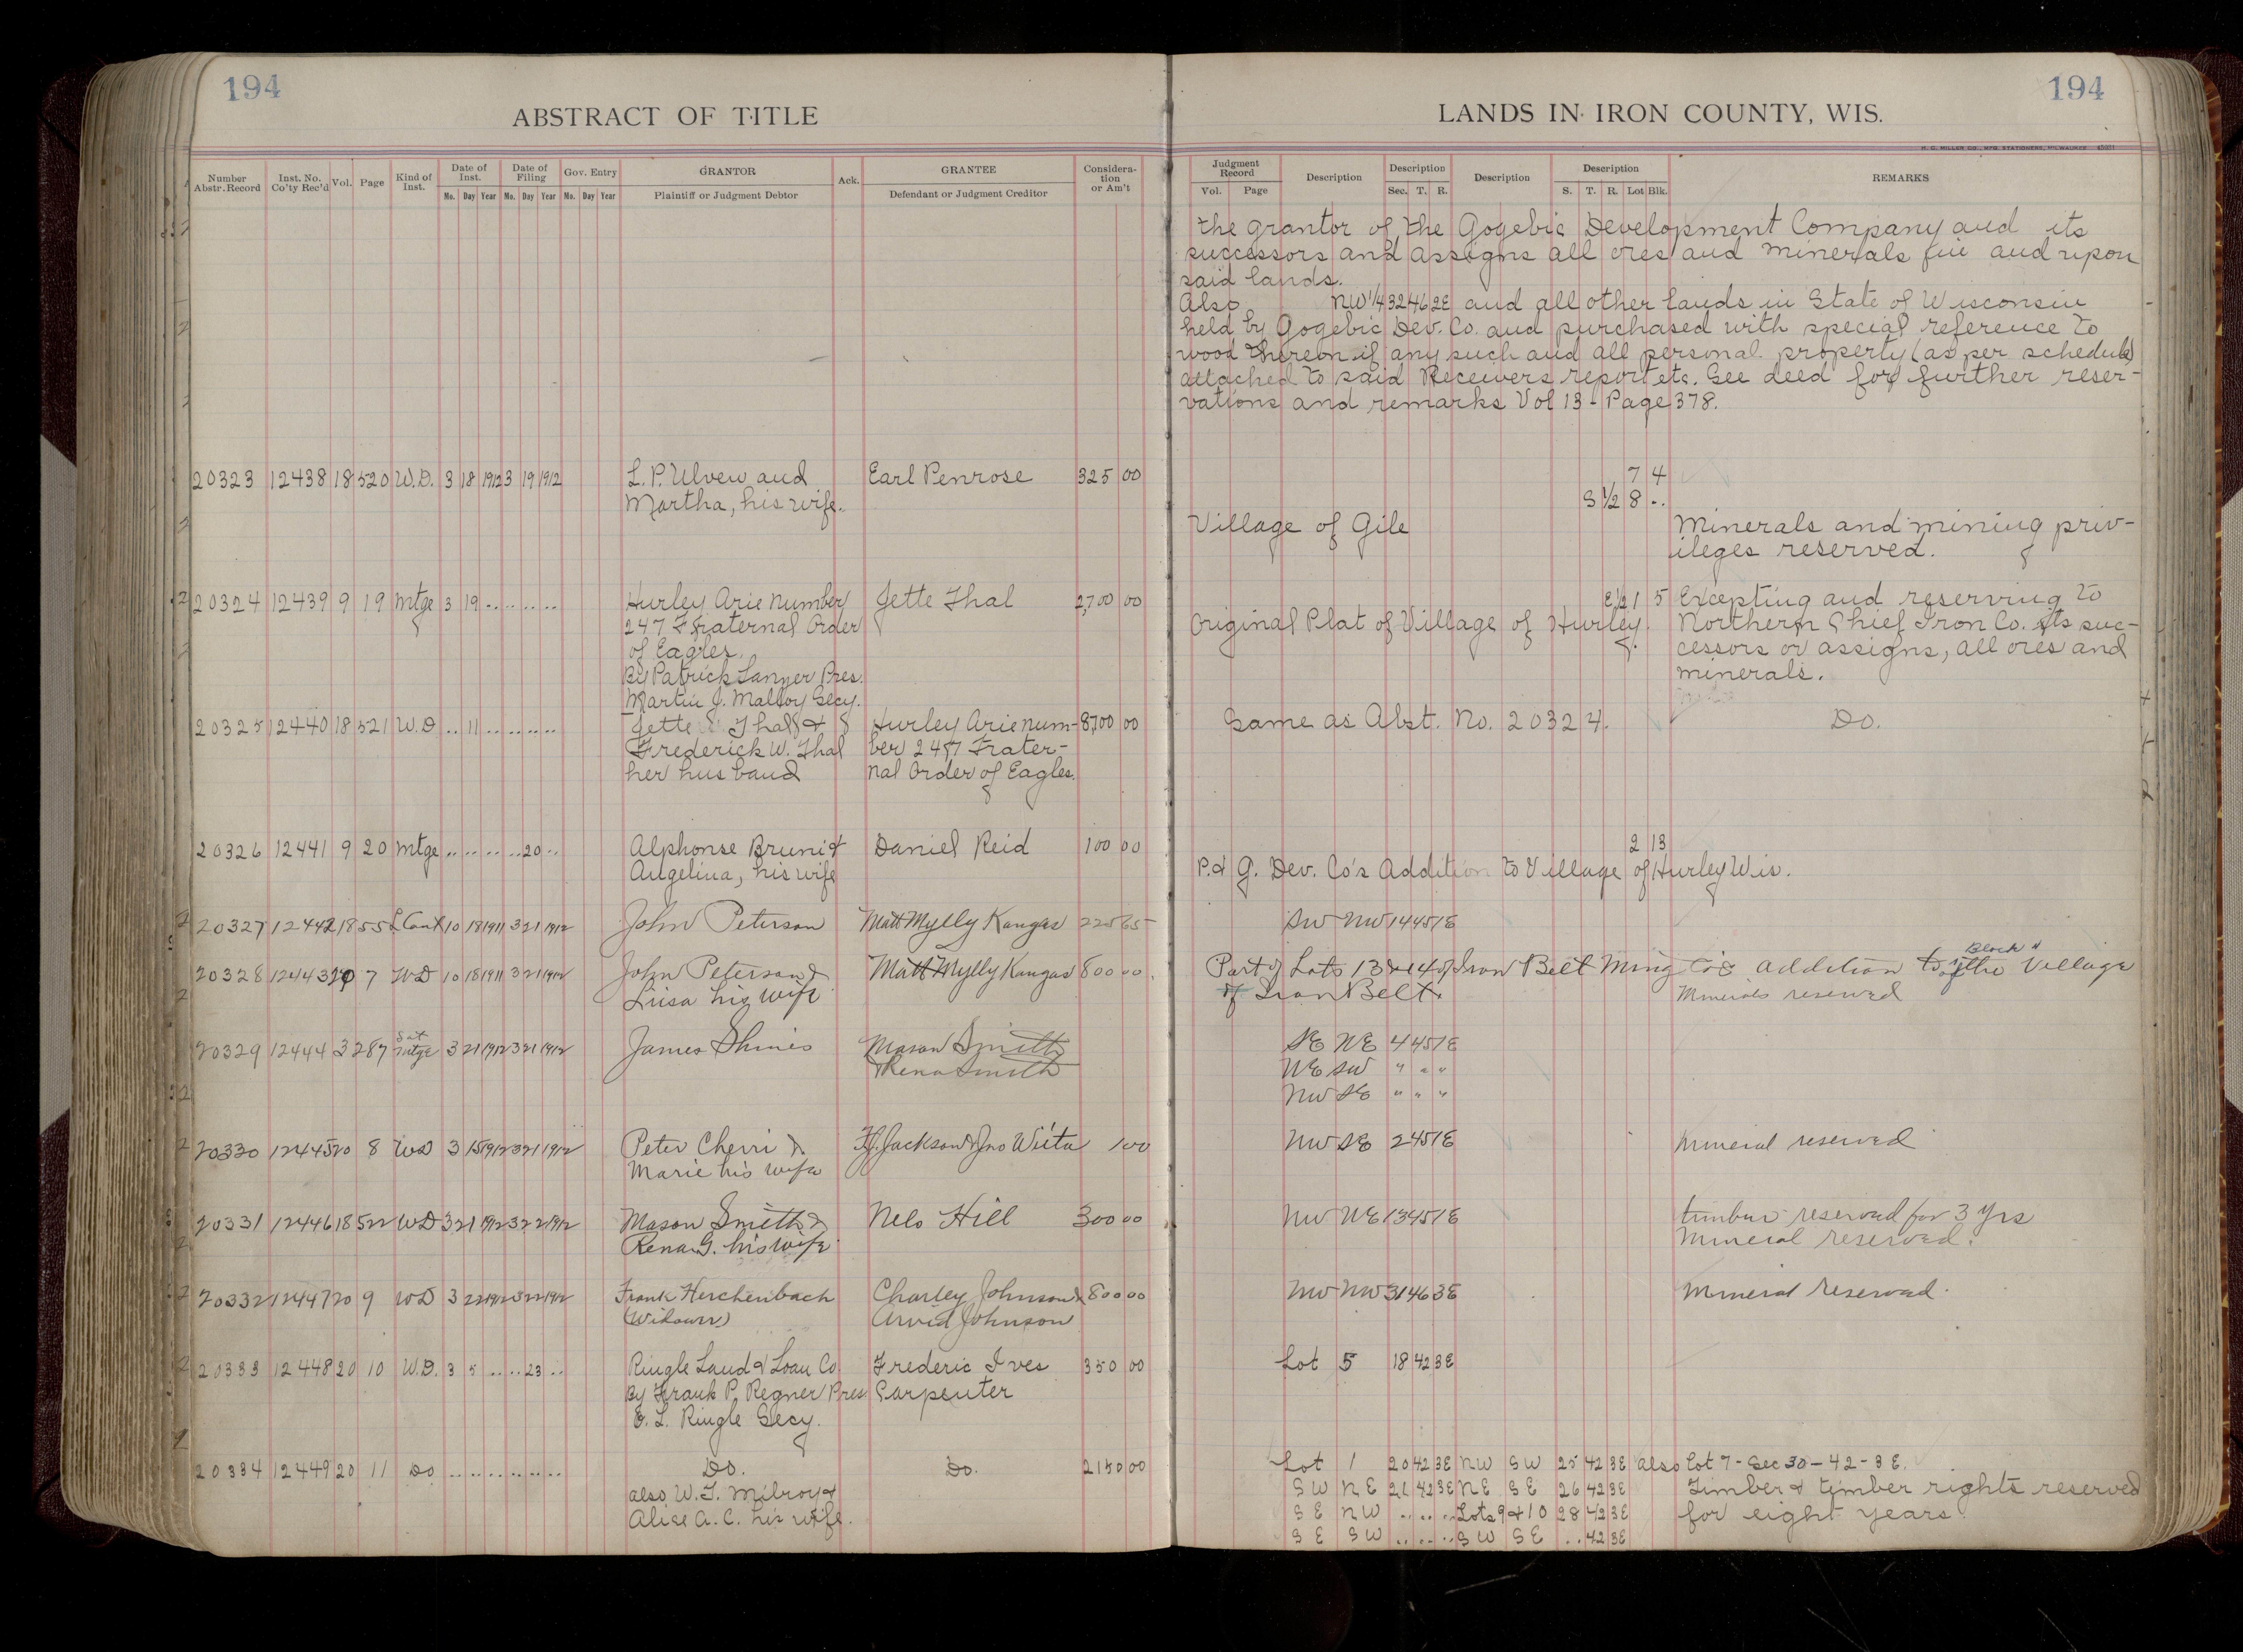 194
ABSTRACT OF TITLE
Number Abstr. Record | Inst. No. Co'ty Rec'd | Vol. | Page | Kind of Inst. | Date of Inst. Mo. Day Year | Date of Filing Mo. Day Year | Gov. Entry Mo. Day Year | GRANTOR Plaintiff or Judgment Debtor | Ack. | GRANTEE Defendant or Judgment Creditor | Considera- tion or Am't
194
LANDS IN IRON COUNTY, WIS.
H. G. MILLER CO., MFG. STATIONERS, MILWAUKEE
Judgment Record Vol. Page | Description | Description Sec. T. R. | Description | Description S. T. R. Lot Blk. | REMARKS
the grantor of the Gogebic Development Company and its
successors and assigns all ores and minerals in and upon
said lands.
Also NW 1/4 32 46 2E and all other lands in State of Wisconsin
held by Gogebic Dev. Co. and purchased with special reference to
wood thereon if any such and all personal property (as per schedule)
attached to said Receivers report etc. See deed for further reser-
vations and remarks Vol 13 - Page 378.
20323 12438 18 520 W.D. 3 18 1912 3 19 1912 L. P. Ulven and Earl Penrose 325 00 7 4
Martha, his wife. S 1/2 8 ..
Village of Gile Minerals and mining priv-
ileges reserved.
20324 12439 9 19 Mtge 3 19 .. .. .. .. Hurley Arie Number Jette Thal 2,700 00 E 1/2 1 5 Excepting and reserving to
247 Fraternal Order Original Plat of Village of Hurley. Northern Chief Iron Co. its suc-
of Eagles. cessors or assigns, all ores and
By Patrick Lanyer Pres. minerals.
Martin J. Malloy Secy.
20325 12440 18 521 W.D .. 11 .. .. .. .. Jette Thal & Hurley Arie num- 8,700 00 Same as Abst. No. 20324. Do.
Frederick W. Thal ber 247 Frater-
her husband nal Order of Eagles.
20326 12441 9 20 Mtge .. .. .. .. 20 .. Alphonse Bruni & Daniel Reid 100 00 2 13
Angelina, his wife P. & G. Dev. Co's Addition to Village of Hurley Wis.
20327 12442 18 55 L Cont 10 18 1911 3 21 1912 John Peterson Matt Mylly Kangas 225 65 SW NW 14 45 1E
20328 12443 20 7 WD 10 18 1911 3 21 1912 John Peterson & Matt Mylly Kangas 800 00 Part of Lots 13 & 14 of Iron Belt Ming Co's Addition to the Village
Block "
Liisa his wife of Iron Belt. Minerals reserved
20329 12444 3 287 Sat Mtge 3 21 1912 3 21 1912 James Shines Mason Smith SE NE 4 45 1E
Rena Smith NE SW " " "
NW SE " " "
20330 12445 20 8 WD 3 15 1912 3 21 1912 Peter Cherri & Jackson & Jno Wiita 1 00 NW SE 2 45 1E Mineral reserved
Marie his wife
20331 12446 18 522 WD 3 21 1912 3 22 1912 Mason Smith & Nels Hill 300 00 NW NE 13 45 1E timber reserved for 3 yrs
Rena G. his wife Mineral reserved.
20332 12447 20 9 WD 3 22 1912 3 22 1912 Frank Herchenbach Charley Johnson & 800 00 NW NW 31 46 3E Mineral reserved.
(Widower) Arvid Johnson
20333 12448 20 10 W.D. 3 5 .. .. 23 .. Ringle Land & Loan Co. Frederic Ives 350 00 Lot 5 18 42 3E
By Frank P. Regner Pres. Carpenter
E. L. Ringle Secy.
20334 12449 20 11 Do .. .. .. .. .. .. Do. Do. 2150 00 Lot 1 20 42 3E NW SW 25 42 3E also Lot 7 - Sec 30 - 42 - 3E.
also W. T. Milroy & SW NE 21 42 3E NE SE 26 42 3E Timber & timber rights reserved
Alice A. C. his wife. SE NW .. .. .. Lots 9 & 10 28 42 3E for eight years.
SE SW .. .. .. SW SE .. 42 3E